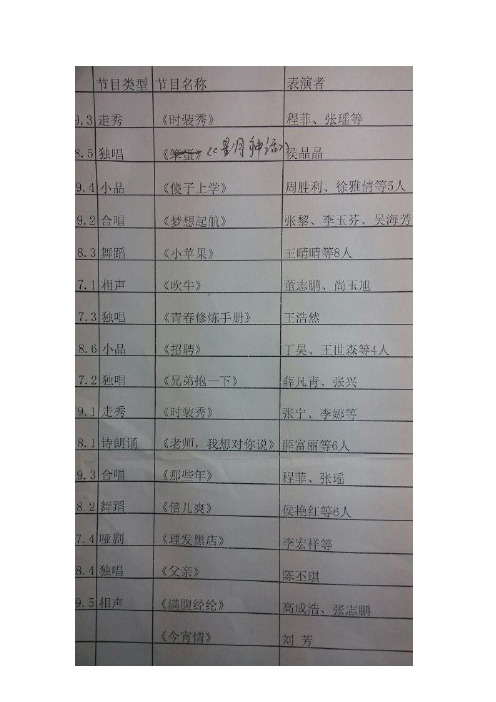 节目类型 节目名称 表演者
9.3 走秀 《时装秀》 程菲、张瑶等
8.5 独唱 《笨蛋》《星月神话》 侯晶晶
9.4 小品 《傻子上学》 周胜利、徐雅倩等5人
9.2 合唱 《梦想起航》 张黎、李玉芬、吴海芳
8.3 舞蹈 《小苹果》 王晴晴等8人
7.1 相声 《吹牛》 董志鹏、尚玉旭
7.3 独唱 《青春修炼手册》 王浩然
8.6 小品 《招聘》 丁昊、王世森等4人
7.2 独唱 《兄弟抱一下》 薛凡青、张兴
9.1 走秀 《时装秀》 张宁、李娜等
8.1 诗朗诵 《老师，我想对你说》 薛富丽等6人
9.3 合唱 《那些年》 程菲、张瑶
8.2 舞蹈 《倍儿爽》 侯艳红等6人
7.4 哑剧 《理发黑店》 李宏祥等
8.4 独唱 《父亲》 陈丕琪
9.5 相声 《满腹经纶》 高成浩、张志鹏
《今宵情》 刘 芳